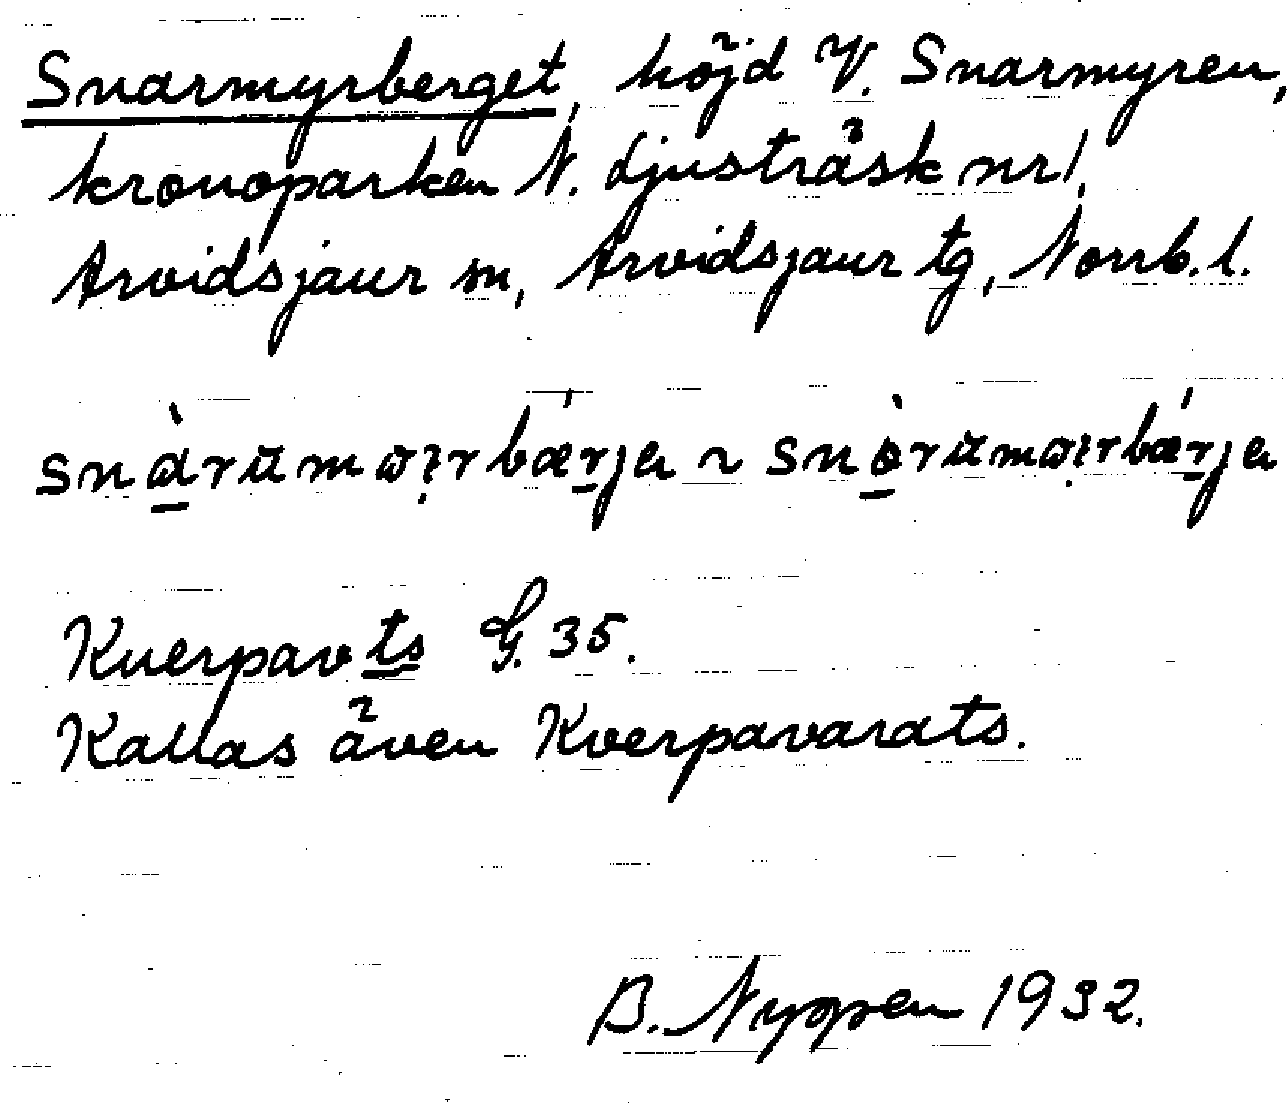 Snarmyrberget, höjd V. Snarmyren,
kronoparken N. Ljusträsk nr 1,
Arvidsjaur sn, Arvidsjaur tg, Norrb. l.
snàrŭmɷırbæ´rja ~ snòrŭmɷırbæ´rja
Kuerpavts G. 35.
Kallas även Kverpavarats.
B. Nyppen 1932.